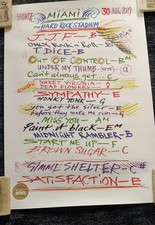 MIAMI 30 AUG 2019
HARD ROCK STADIUM
JJF - B
only Rock n Roll - B
T. DICE - B
OUT OF CONTROL - Bm
UNDER MY THUMB
Can't always get... C
SWEET VIRGINIA
DEAD FLOWERS
SYMPATHY - E
HONKY TONK - G
you got the silver
before they make me run - G
MISS YOU - Am
Paint it black - Em
MIDNIGHT RAMBLER - B
START ME UP - F
BROWN SUGAR - C
GIMMIE SHELTER - C#
SATISFACTION - E